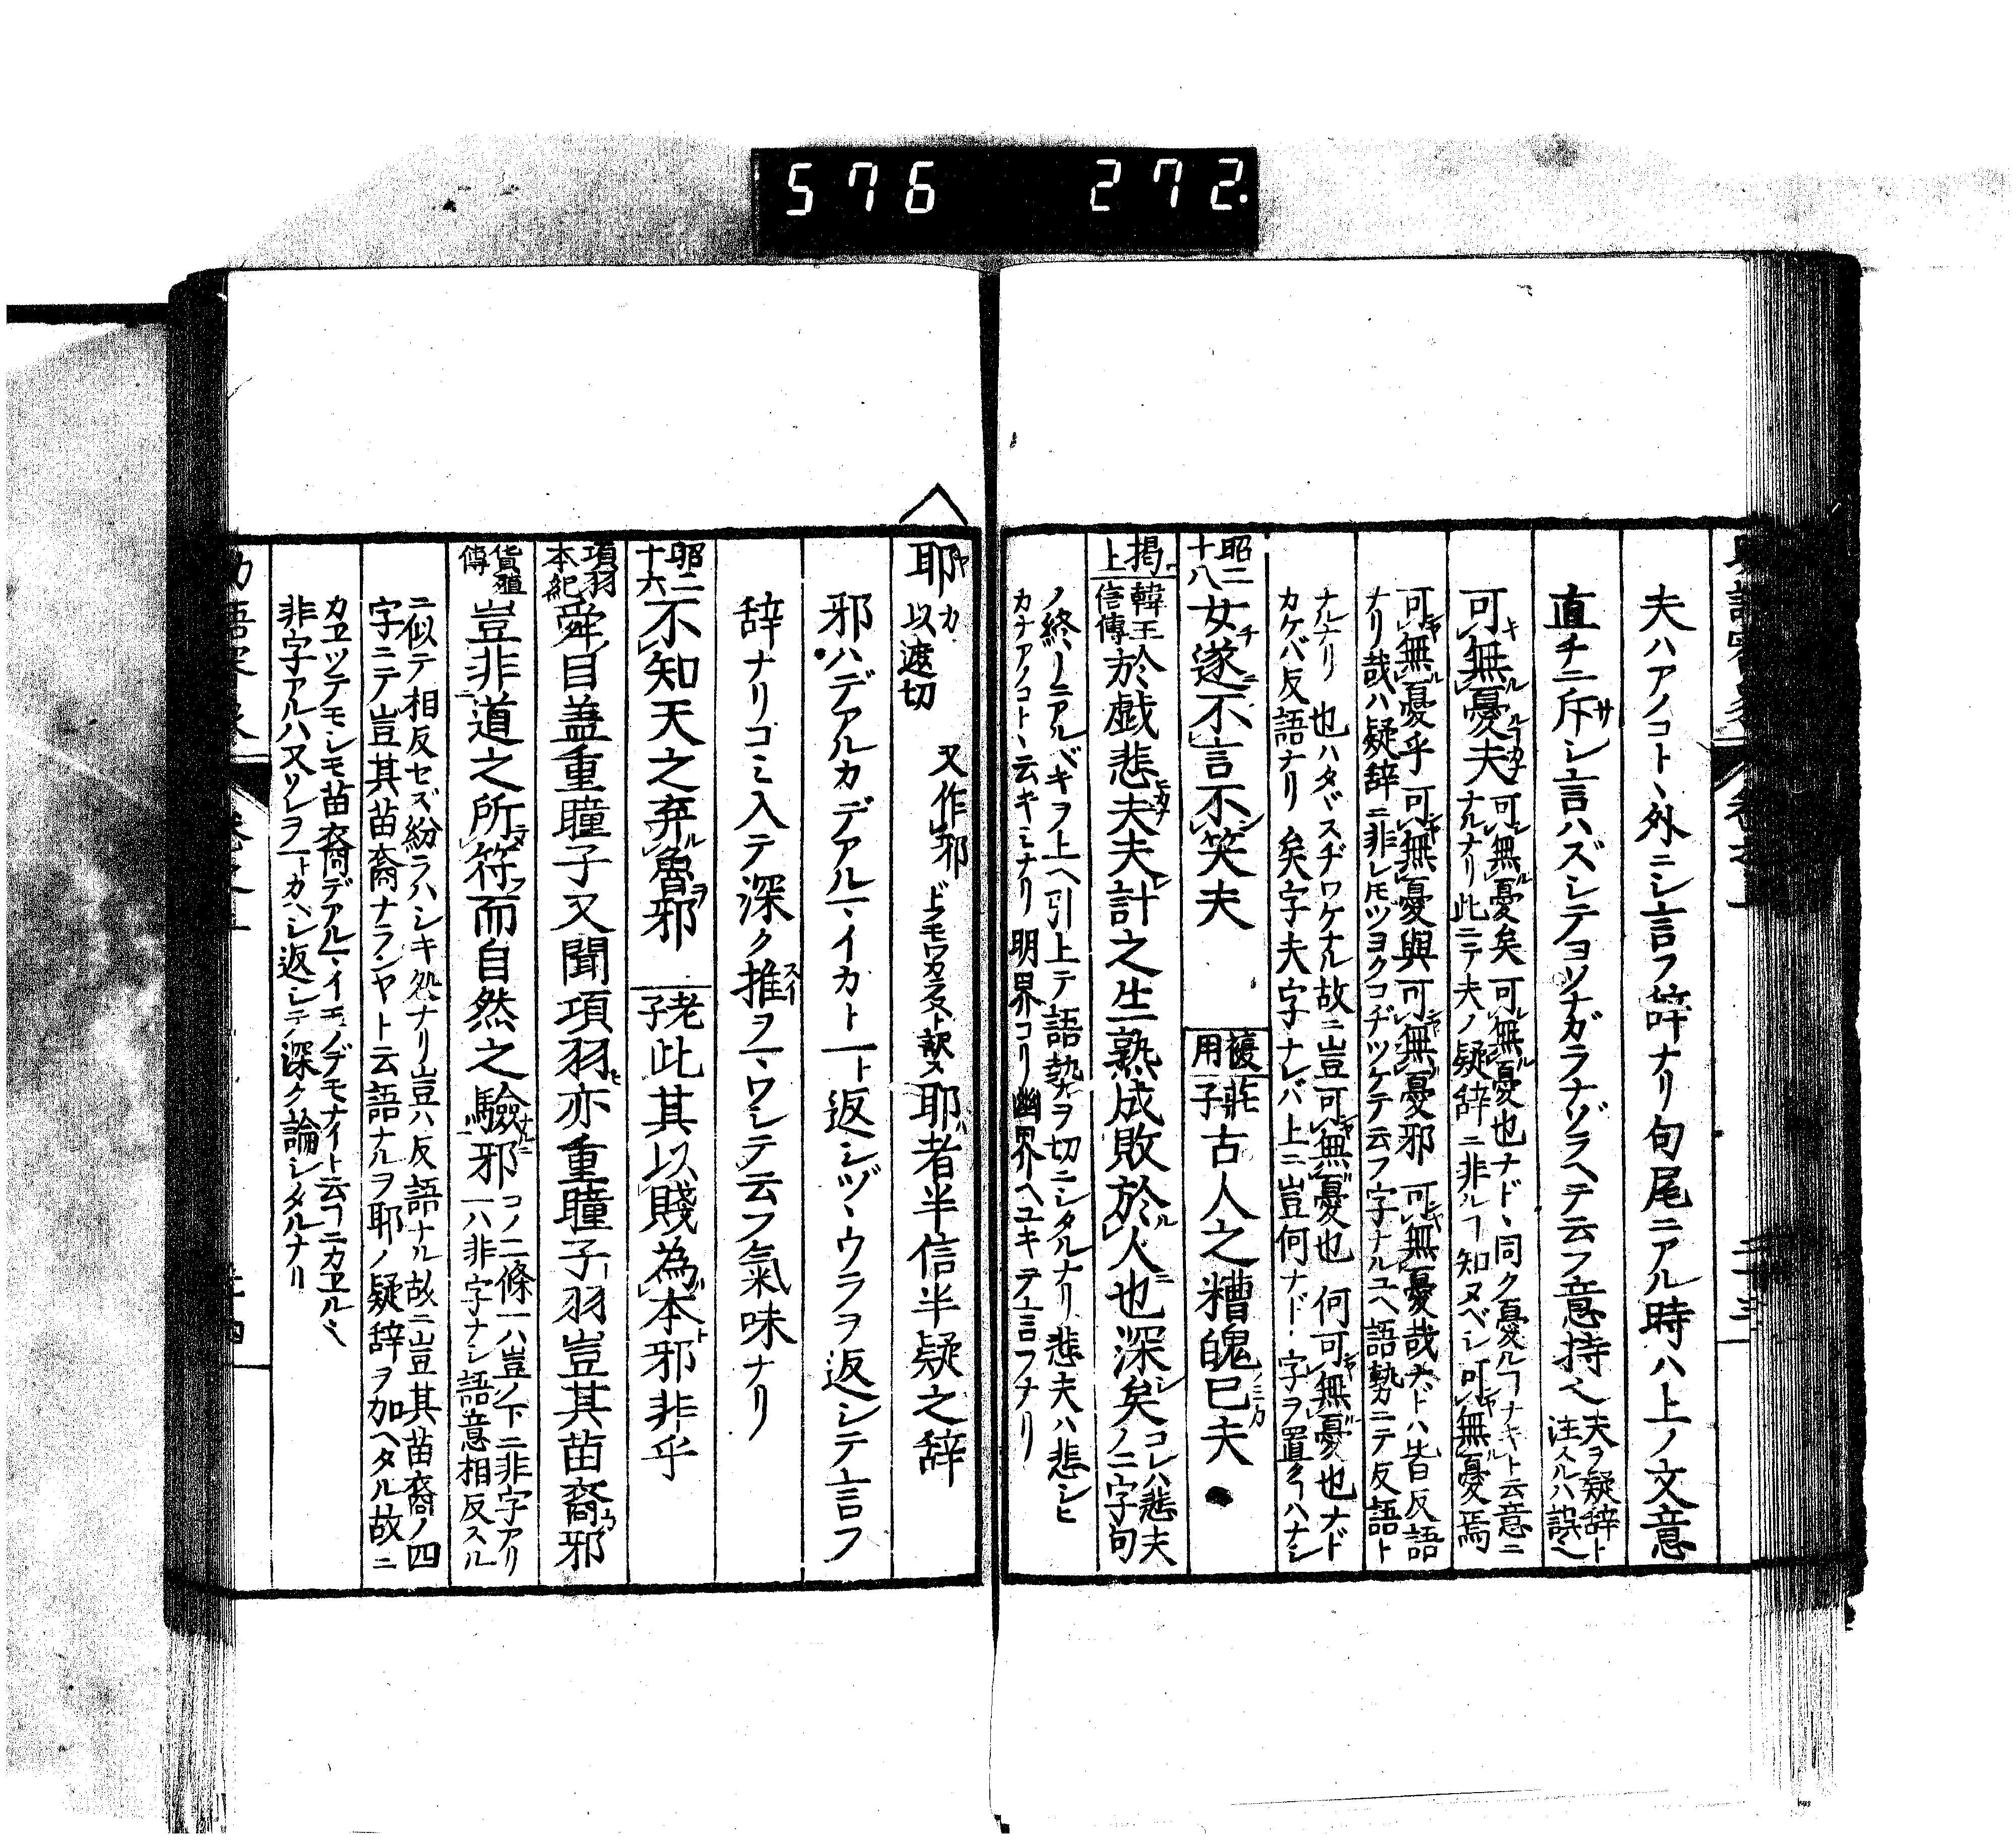 576 272.
夫ハアノコトヽ外ニシ言フ辞ナリ句尾ニアル時ハ上ノ文意
直チニ斥シ言ハズシテヨソナガラナゾラヘテ云フ意持ヘ
夫ヲ疑辞ト
注スルハ誤ヘ
可無憂夫
可無憂矣可無憂也ナドヽ同ク憂ルヿナキト云意ニ
ナルナリ此ニテ夫ノ疑辞ニ非ルヿ知ヌベシ可無憂焉
可無憂乎可無憂與可無憂邪可無憂哉ナドハ皆反語
ナリ哉ハ疑辞ニ非レ𪜈ツヨクコヂツケテ云フ字ナルユヘ語勢ニテ反語ト
ナルナリ也ハタヾスヂワケナル故ニ豈可無憂也何可無憂也ナド
カケバ反語ナリ矣字夫字ナレバ上ニ豈何ナドヽ字ヲ置クヿハナシ
昭二
十八
女遂不言不笑夫
複
用
莊
子
古人之糟魄已夫
掲
上
韓王
信傳
於戲悲夫夫計之生熟成敗於人也深矣
コレハ悲夫
ノ二字句
ノ終リニアルベキヲ上ヘ引上テ語勢ヲ切ニシタルナリ悲夫ハ悲シヒ
カナアノコトヽ云キミナリ明界コリ幽界ヘユキテ言フナリ
耶 ヤ カ 以遮切 又作邪 ドフモワカラヌト訳ス 耶者半信半疑之辞
邪ハデアルカデアルヽイカト一ト返シヅヽウラヲ返シテ言フ
辞ナリコミ入テ深ク推ヲ一ヽワシテ云フ氣味ナリ
昭二
十六
不知天之弃魯邪
老
子
此其以賤為本邪非乎
項羽
本紀
舜目蓋重瞳子又聞項羽亦重瞳子羽豈其苗裔邪
貨殖
傳
豈非道之所符而自然之驗邪
コノ二條一ハ豈ノ下ニ非字アリ
一ハ非字ナシ語意相反スル
ニ似テ相反セズ紛ラハシキ処ナリ豈ハ反語ナル故ニ豈其苗裔ノ四
字ニテ豈其苗裔ナランヤト云語ナルヲ耶ノ疑辞ヲ加ヘタル故ニ
カヱツテモシモ苗裔デアルヽイモノデモナイト云ヿニカヱルヘ
非字アルハ又ソレヲ一トカヘシ返シテ深ク論シタルナリ